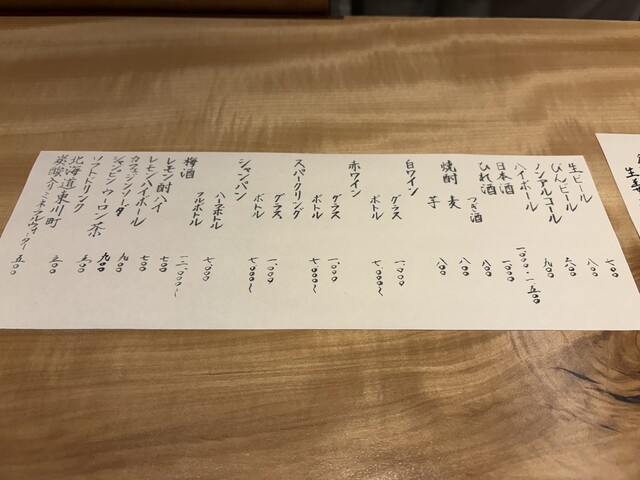 生ビール 七〇〇
びんビール 八〇〇
ノンアルコール 六〇〇
ハイボール 九〇〇
日本酒 一〇〇〇・一五〇〇
ひれ酒 一〇〇〇
つぎ酒 八〇〇
焼酎 麦 八〇〇
芋 八〇〇
白ワイン
グラス 一、〇〇〇
ボトル 七、〇〇〇〜
赤ワイン
グラス 一、〇〇〇
ボトル 七、〇〇〇〜
スパークリング
グラス 一、〇〇〇
ボトル 七、〇〇〇〜
シャンパン
ハーフボトル 七、〇〇〇
フルボトル 一二、〇〇〇〜
梅酒 七〇〇
レモン酎ハイ 七〇〇
レモンハイボール 九〇〇
カフェジンソーダ 九〇〇
ジャスミン・ウーロン茶 五〇〇
ソフトドリンク 五〇〇
北海道東川町
炭酸入りミネラルウォーター 五〇〇